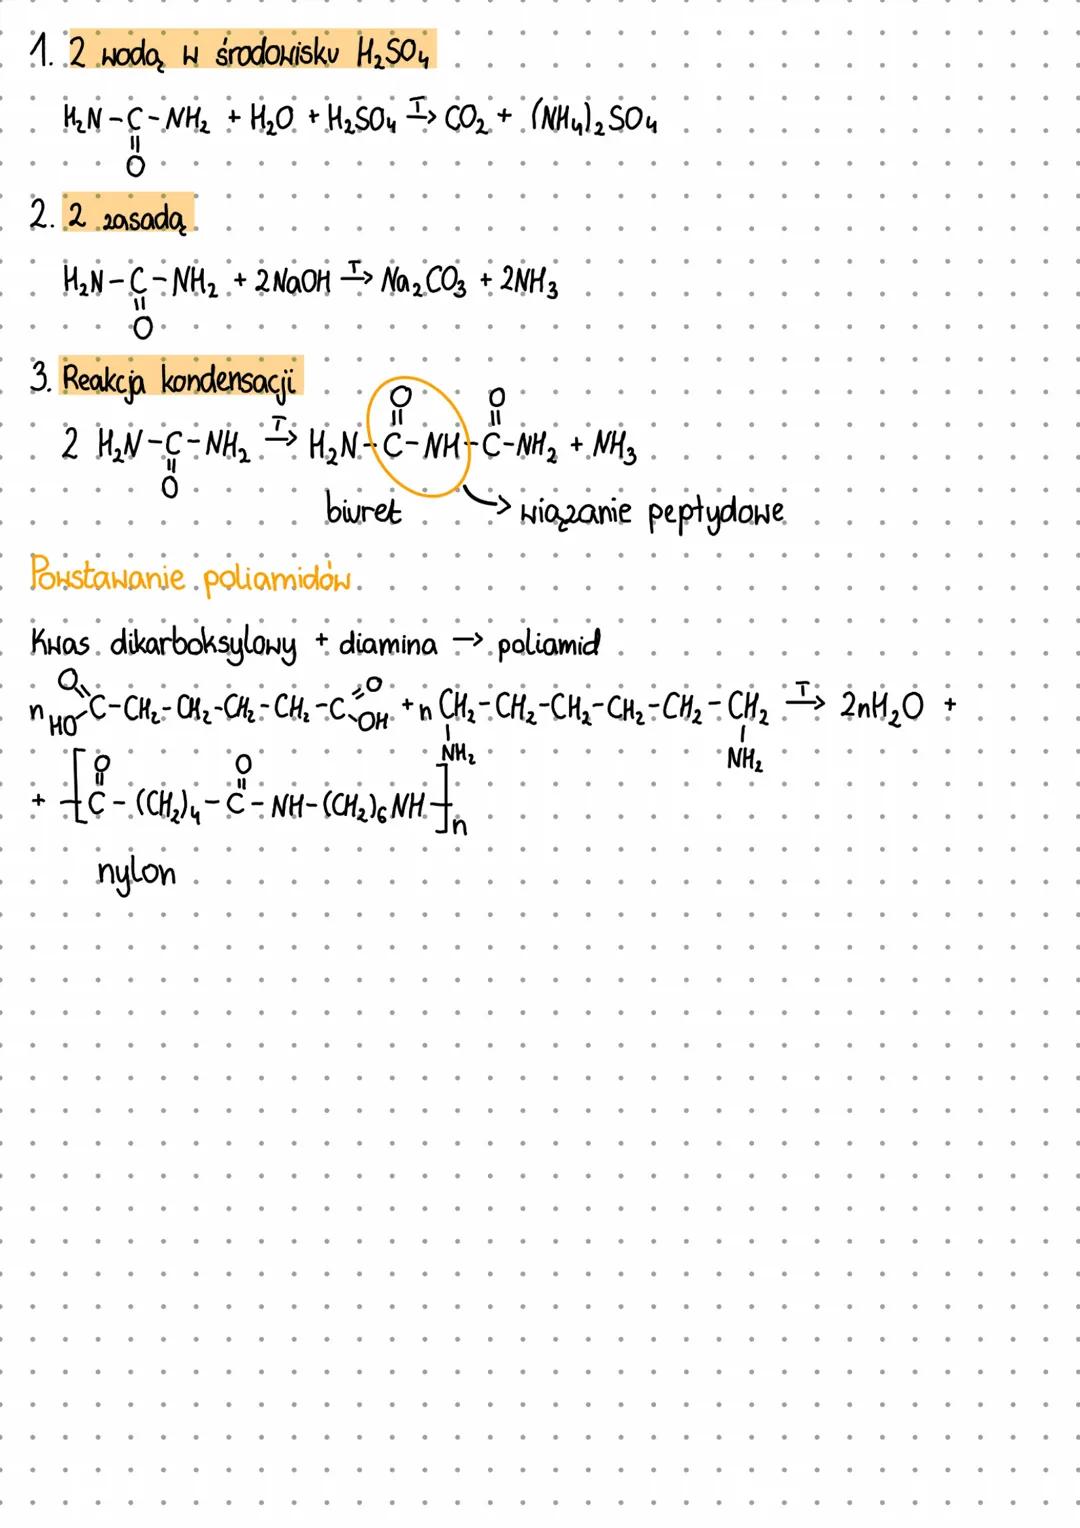 1. Z wodą w środowisku H₂SO₄
H₂N-C-NH₂ + H₂O + H₂SO₄ T→ CO₂ + (NH₄)₂SO₄
=
O
2. Z zasadą
H₂N-C-NH₂ + 2NaOH T→ Na₂CO₃ + 2NH₃
=
O
3. Reakcja kondensacji
O O
= =
2 H₂N-C-NH₂ T→ H₂N-C-NH-C-NH₂ + NH₃
=
O
biuret → wiązanie peptydowe
Powstawanie poliamidów
Kwas dikarboksylowy + diamina → poliamid
O O
n HO C-CH₂-CH₂-CH₂-CH₂-C OH + n CH₂-CH₂-CH₂-CH₂-CH₂-CH₂ T→ 2nH₂O +
NH₂ NH₂
O O
+ [C-(CH₂)₄-C-NH-(CH₂)₆NH]n
nylon